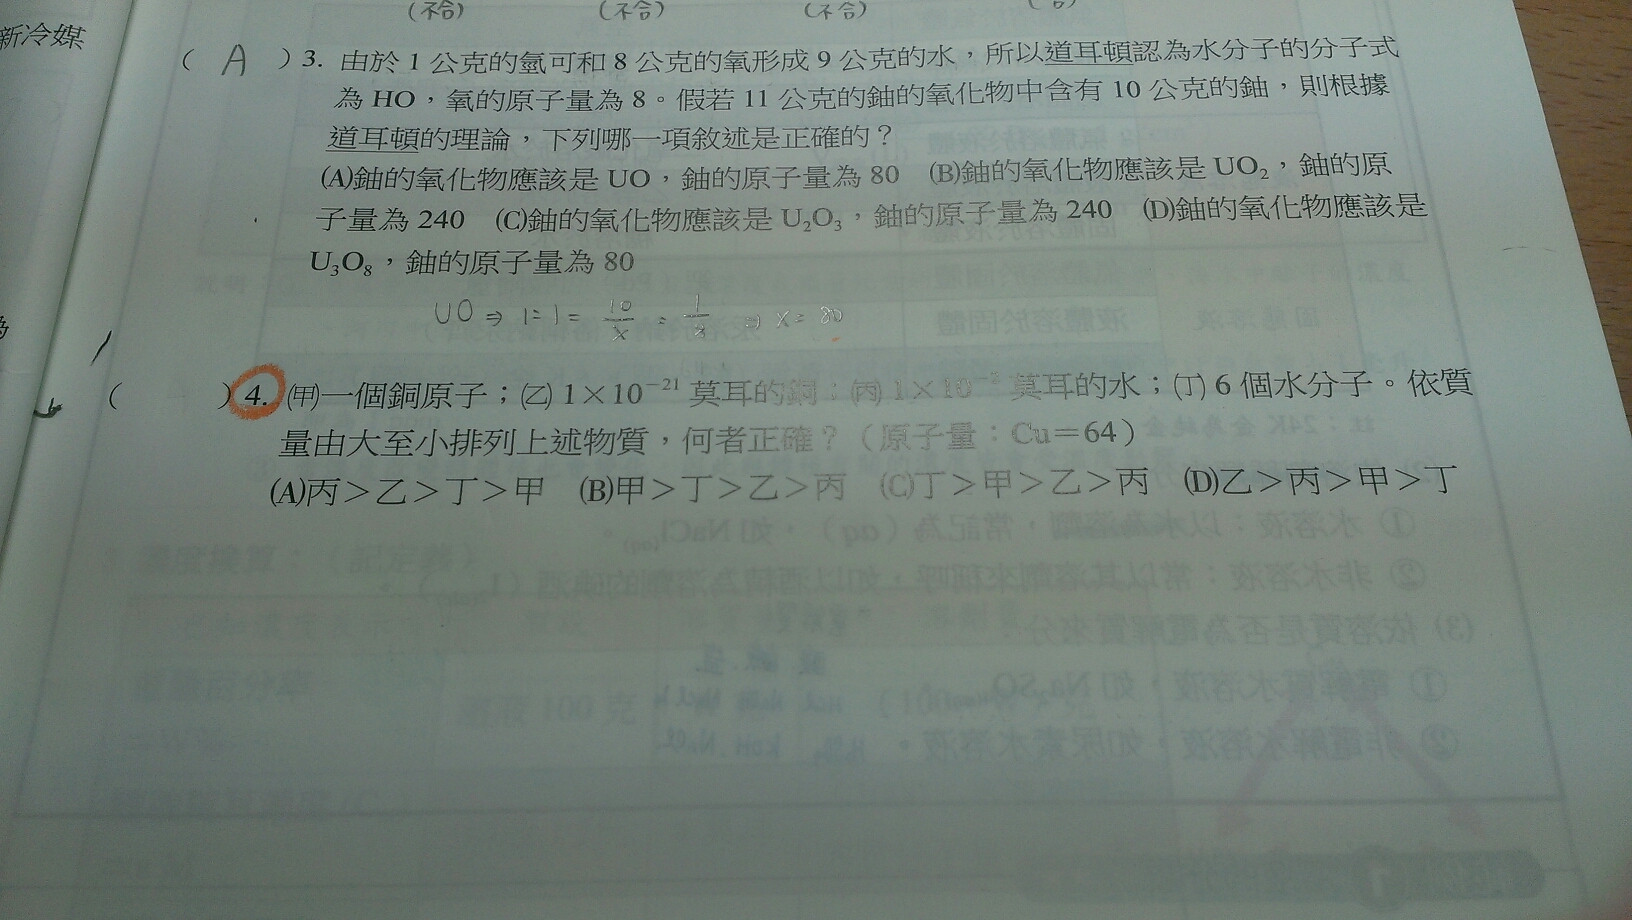 (不合) (不合) (不合)
新冷媒
( A ) 3. 由於 1 公克的氫可和 8 公克的氧形成 9 公克的水，所以道耳頓認為水分子的分子式
為 HO，氧的原子量為 8。假若 11 公克的鈾的氧化物中含有 10 公克的鈾，則根據
道耳頓的理論，下列哪一項敘述是正確的？
(A)鈾的氧化物應該是 UO，鈾的原子量為 80 (B)鈾的氧化物應該是 UO₂，鈾的原
子量為 240 (C)鈾的氧化物應該是 U₂O₃，鈾的原子量為 240 (D)鈾的氧化物應該是
U₃O₈，鈾的原子量為 80
UO ⇒ 1:1 = 10/x = 1/8 ⇒ x = 80
( ) 4. (甲)一個銅原子；(乙) 1×10⁻²¹ 莫耳的銅；(丙) 1×10 莫耳的水；(丁) 6 個水分子。依質
量由大至小排列上述物質，何者正確？（原子量：Cu＝64）
(A)丙＞乙＞丁＞甲 (B)甲＞丁＞乙＞丙 (C)丁＞甲＞乙＞丙 (D)乙＞丙＞甲＞丁